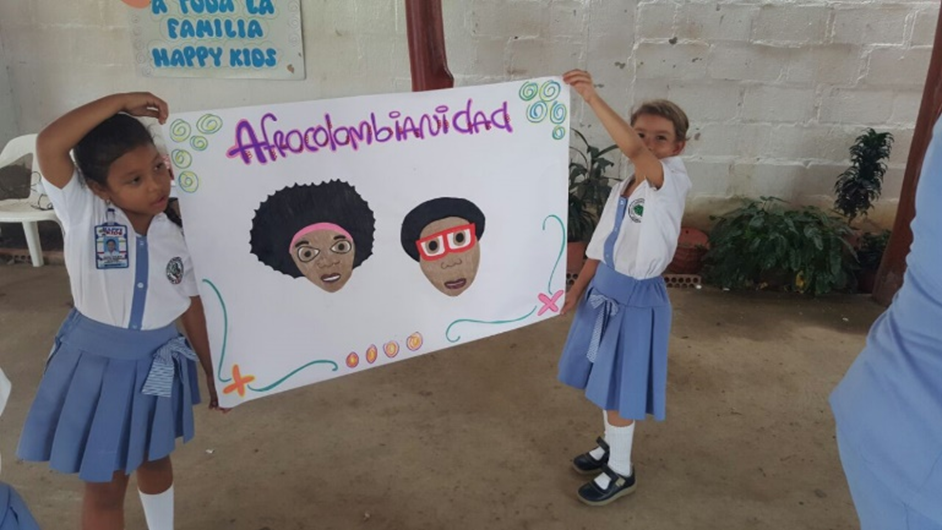 A TODA LA
FAMILIA
HAPPY KIDS
Afrocolombianidad